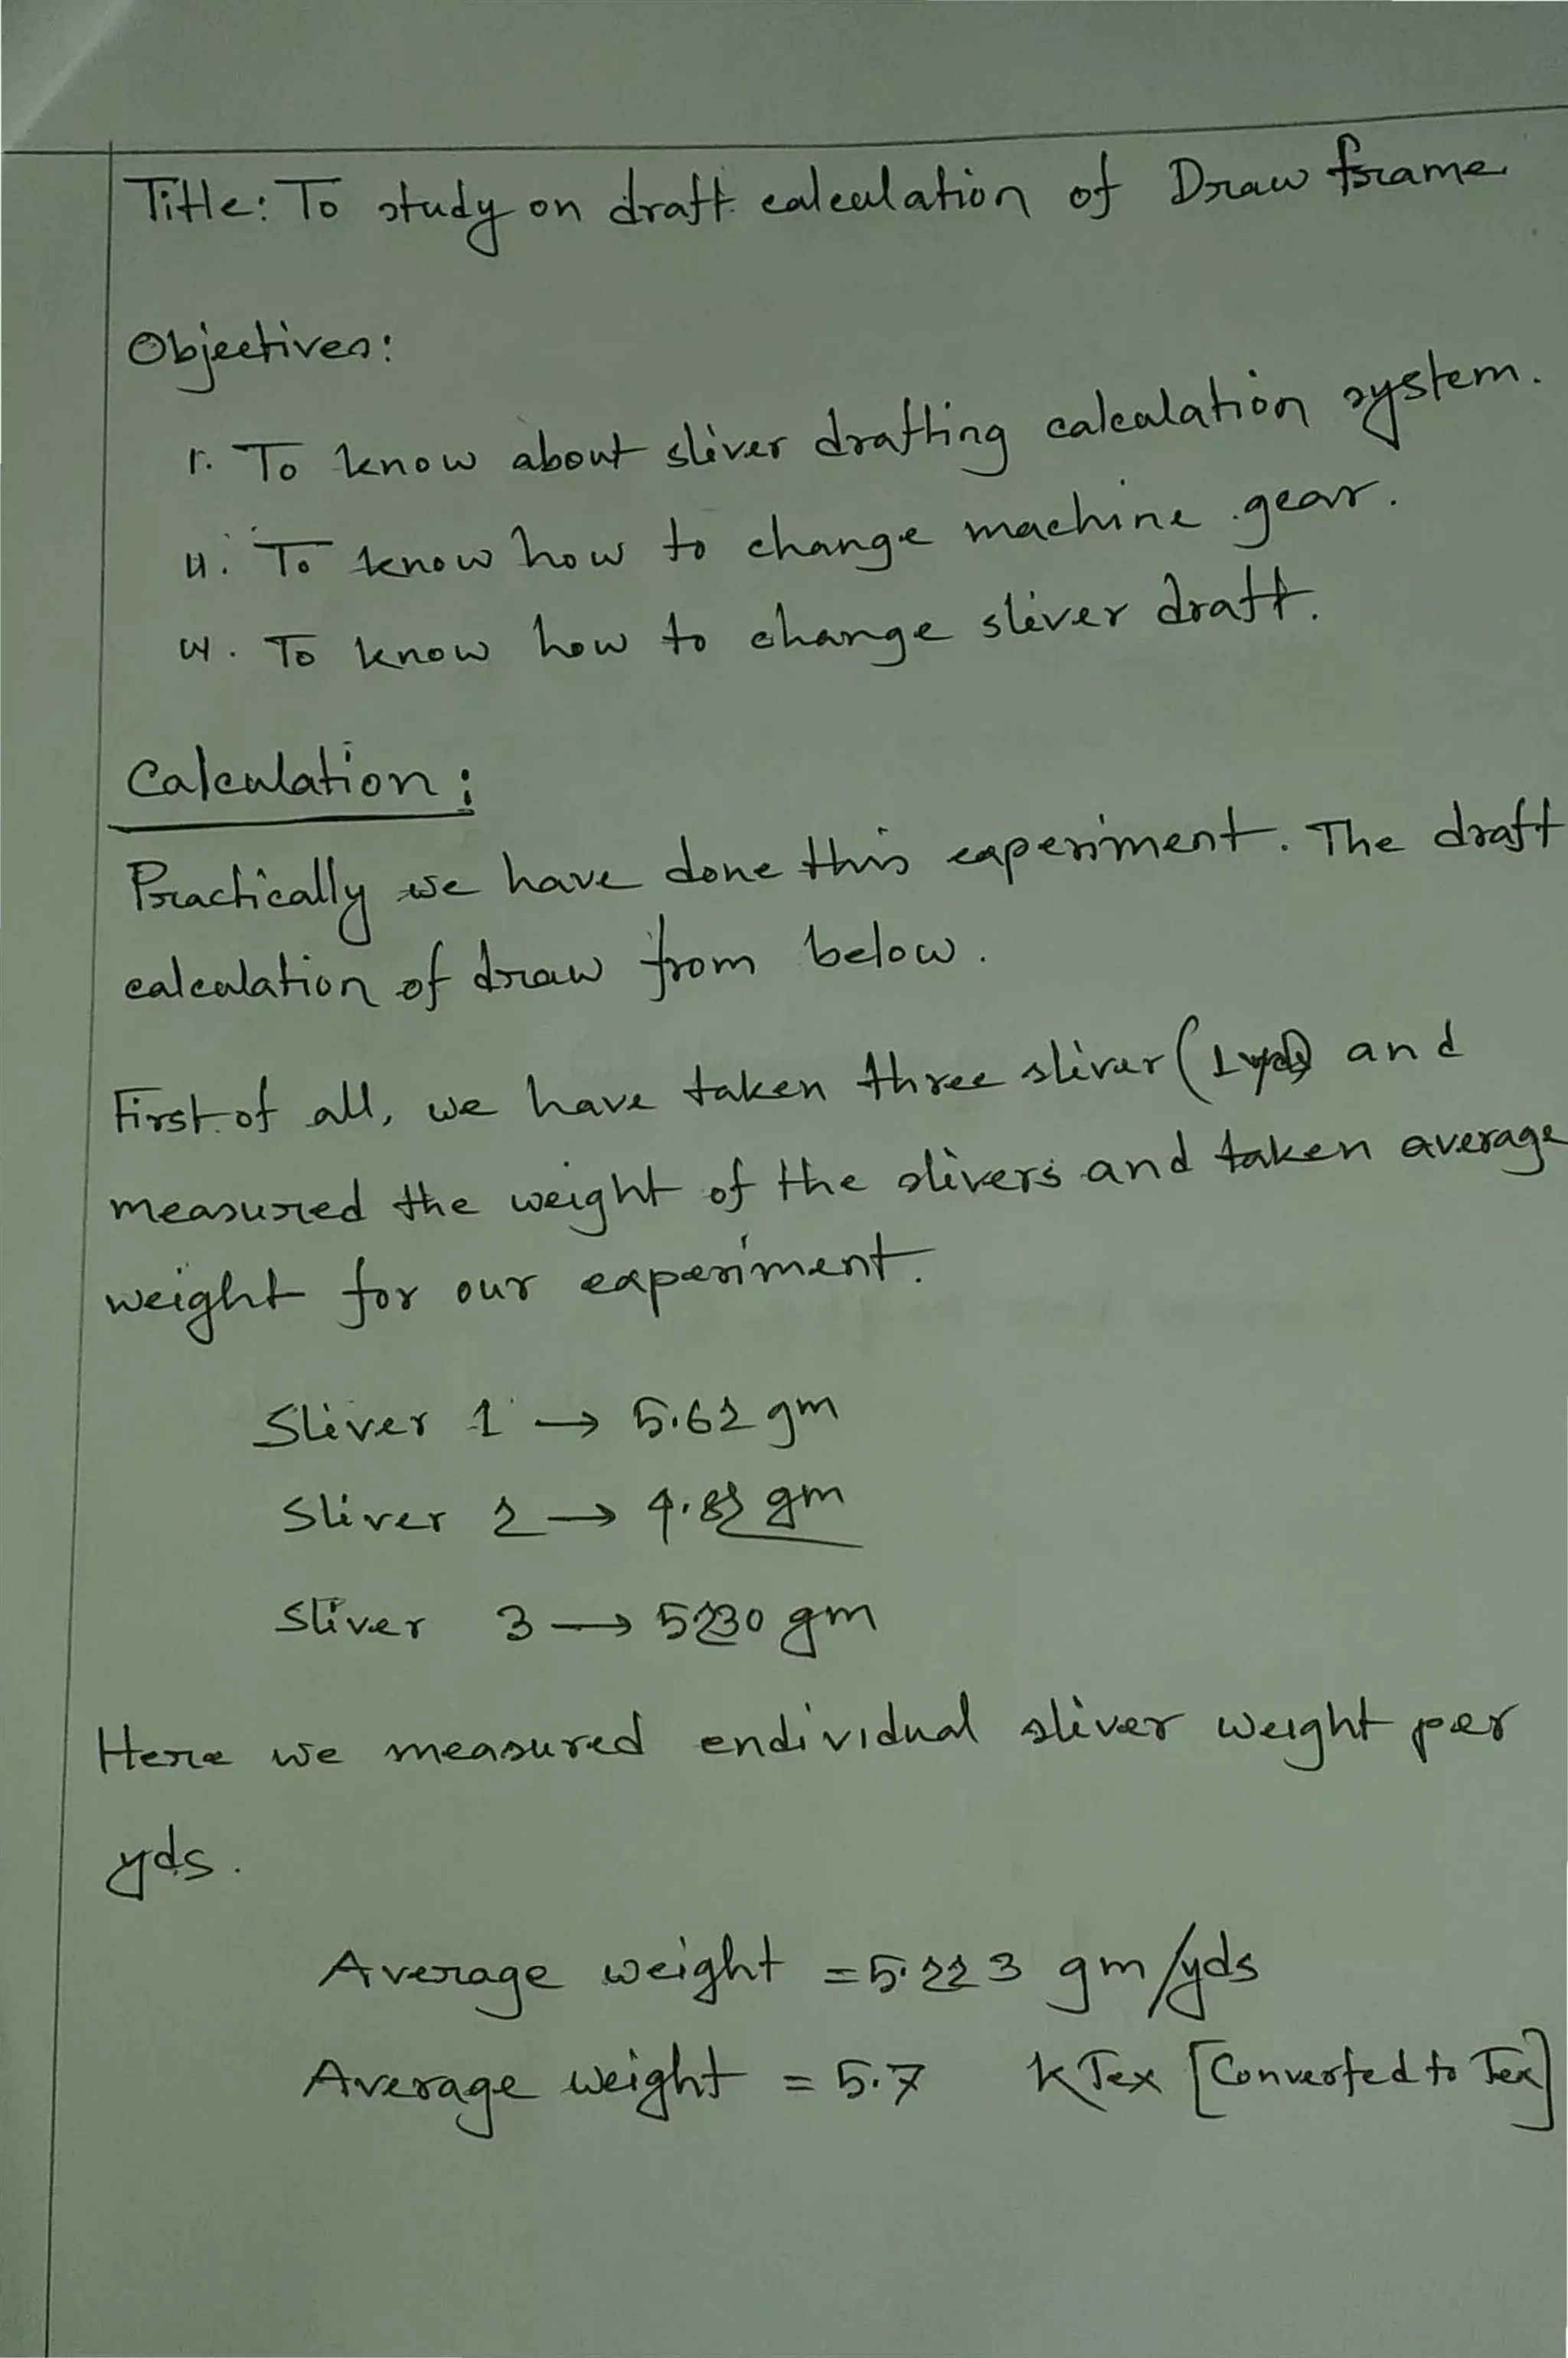 Title: To study on draft calculation of Draw frame
Objectives:
i. To know about sliver drafting calculation system.
ii. To know how to change machine gear.
iii. To know how to change sliver draft.
Calculation:
Practically we have done this experiment. The draft
calculation of draw from below.
First of all, we have taken three sliver (1 yds) and
measured the weight of the slivers and taken average
weight for our experiment.
Sliver 1 → 5.62 gm
Sliver 2 → 4.82 gm
Sliver 3 → 5230 gm
Here we measured endividual sliver weight per
yds.
Average weight = 5.223 gm/yds
Average weight = 5.7 kTex [Converted to Tex]